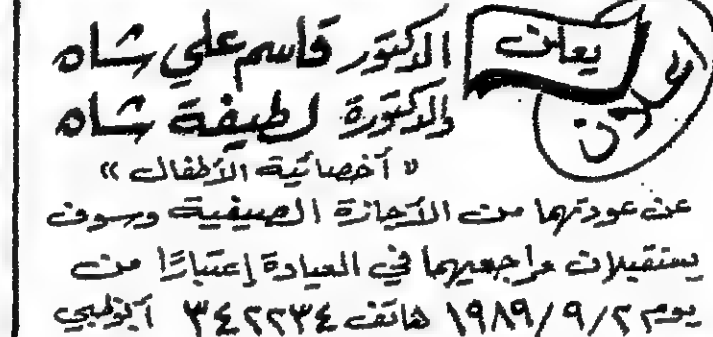 إعلان
يعلن
الدكتور قاسم علي شاه
والدكتورة لطيفة شاه
« أخصائية الأطفال »
عن عودتهما من الأجازة الصيفية وسوف
يستقبلان مراجعيهما في العيادة إعتبارًا من
يوم ١٩٨٩/٩/٢ هاتف ٣٤٢٢٣٤ أبوظبي